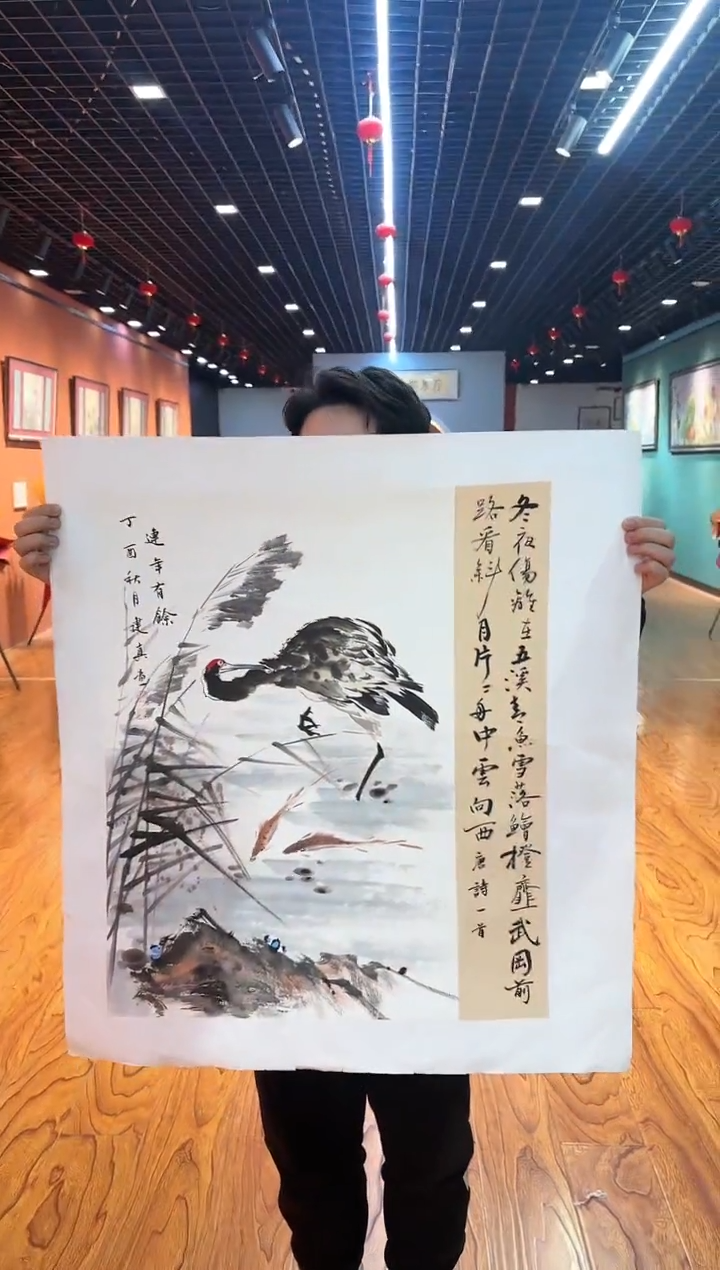 冬夜傷離在五溪青魚雪落鱠橙齏武岡前
路看斜月片〻舟中雲向西 唐詩一首
連年有餘
丁酉秋月建真畫